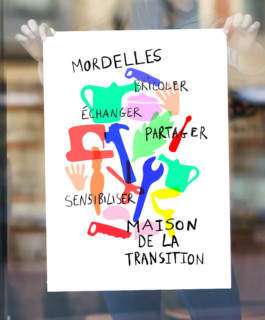 MORDELLES
BRICOLER
ÉCHANGER
PARTAGER
SENSIBILISER
MAISON
DE LA
TRANSITION